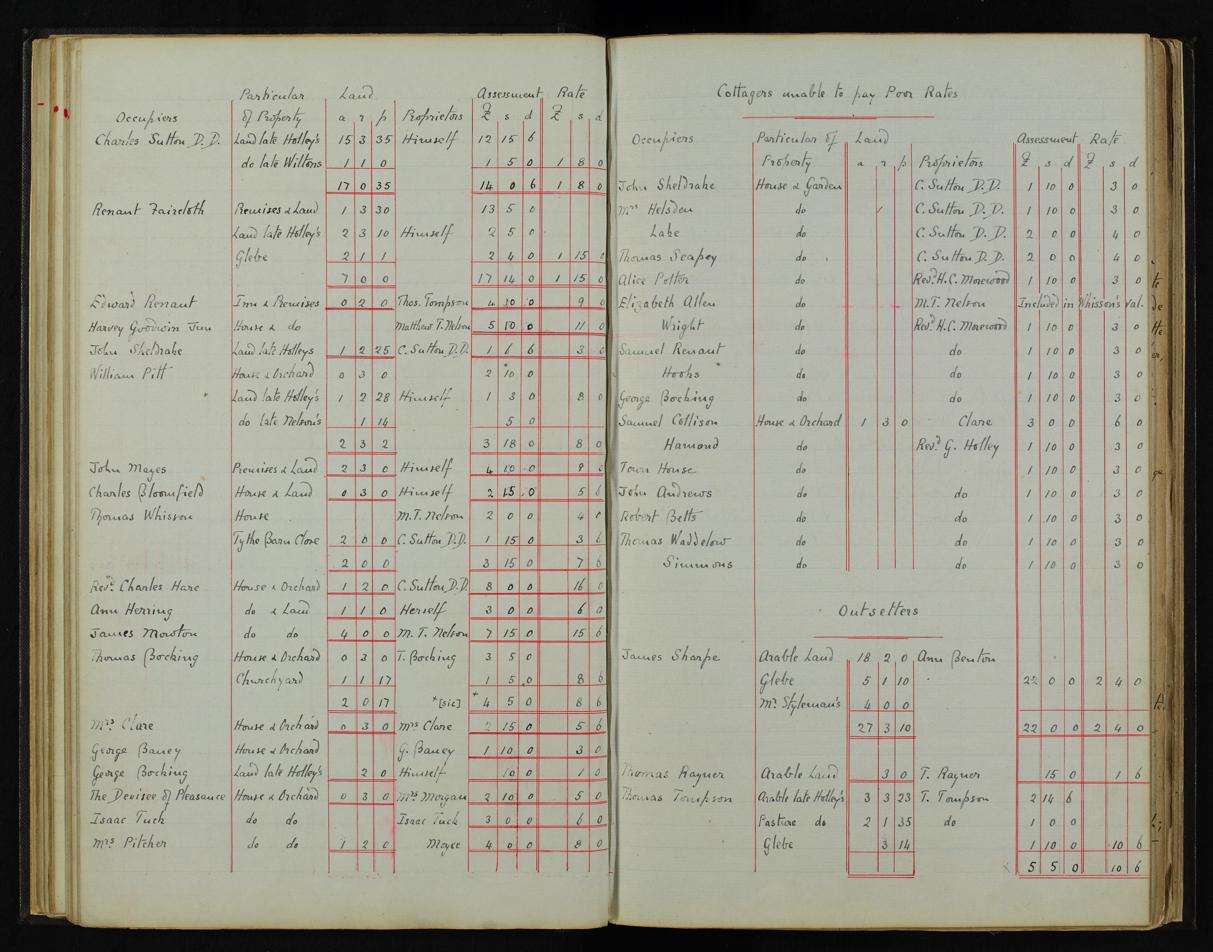 Particular Land Assessment Rate
Occupiers of Property a r p Proprietors £ s d £ s d
Charles Sutton D.D. Land late Holley's 15 3 35 Himself 12 15 6
do late Wiltons 1 1 0 1 5 0 1 8 0
17 0 35 14 0 6 1 8 0
Renant Faircloth Premises & Land 1 3 30 13 5 0
Land late Holley's 2 3 10 Himself 2 5 0
Glebe 2 1 1 2 4 0 1 15 0
7 0 0 17 14 0 1 15 0
Edward Renant Inn & Premises 0 2 0 Thos. Tompson 4 10 0 9 0
Harvey Goodwin Jun House & do Matthew T. Nelson 5 10 0 11 0
John Sheldrake Land late Holleys 1 2 25 C. Sutton, D.D. 1 6 6 3 0
William Pitt House & Orchard 0 3 0 2 10 0
Land late Holley's 1 2 28 Himself 1 3 0 8 0
do late Nelson's 1 14 5 0
2 3 2 3 18 0 8 0
John Mayes Premises & Land 2 3 0 Himself 4 10 0 9 0
Charles Bloomfield House & Land 0 3 0 Himself 2 15 0 5 6
Thomas Whisson House M.T. Nelson 2 0 0 4 0
Tythe Barn Close 2 0 0 C. Sutton D.D. 1 15 0 3 6
2 0 0 3 15 0 7 6
Revd. Charles Hare House & Orchard 1 2 0 C. Sutton, D.D. 8 0 0 16 0
Ann Herring do & Land 1 1 0 Herself 3 0 0 6 0
James Mowton do do 4 0 0 M. T. Nelson 7 15 0 15 6
Thomas Bocking House & Orchard 0 3 0 T. Bocking 3 5 0
Churchyard 1 1 17 1 5 0 8 6
2 0 17 *[sic] * 4 5 0 8 6
Mrs Clare House & Orchard 0 3 0 Mrs Clare 2 15 0 5 6
George Baney House & Orchard G. Baney 1 10 0 3 0
George Bocking Land late Holley's 2 0 Himself 10 0 1 0
The Devisee of Pleasance House & Orchard 0 3 0 Mrs Morgan 2 10 0 5 0
Isaac Tuck do do Isaac Tuck 3 0 0 6 0
Mrs Pitcher do do 1 2 0 Moyse 4 0 0 8 0
Cottagers unable to pay Poor Rates
Occupiers Particular of Land Assessment Rate
Property a r p Proprietors £ s d £ s d
John Sheldrake House & Garden C. Sutton D.D. 1 10 0 3 0
Mrs Helsden do C. Sutton D.D. 1 10 0 3 0
Lake do C. Sutton D.D. 2 0 0 4 0
Thomas Seapey do C. Sutton D.D. 2 0 0 4 0
Alice Potter do Revd. H.C. Morewood 1 10 0 3 0
Elizabeth Allen do M.T. Nelson Included in Whisson's Val.
Wright do Revd. H.C. Morewood 1 10 0 3 0
Samuel Renant do do 1 10 0 3 0
Hooks do do 1 10 0 3 0
George Bocking do do 1 10 0 3 0
Samuel Collison House & Orchard 1 3 0 Clare 3 0 0 6 0
Hamond do Revd. G. Holley 1 10 0 3 0
Town House do 1 10 0 3 0
John Andrews do do 1 10 0 3 0
Robert Betts do do 1 10 0 3 0
Thomas Waddelow do do 1 10 0 3 0
Simmons do do 1 10 0 3 0
Outsetters
James Sharpe Arable Land 18 2 0 Ann Benton
Glebe 5 1 10 22 0 0 2 4 0
Mr. Styleman's 4 0 0
27 3 10 22 0 0 2 4 0
Thomas Rayner Arable Land 3 0 T. Rayner 15 0 1 6
Thomas Tompson Arable late Holley's 3 3 23 T. Tompson 2 14 6
Pasture do 2 1 35 do 1 0 0
Glebe 3 14 1 10 0 10 6
5 5 0 10 6